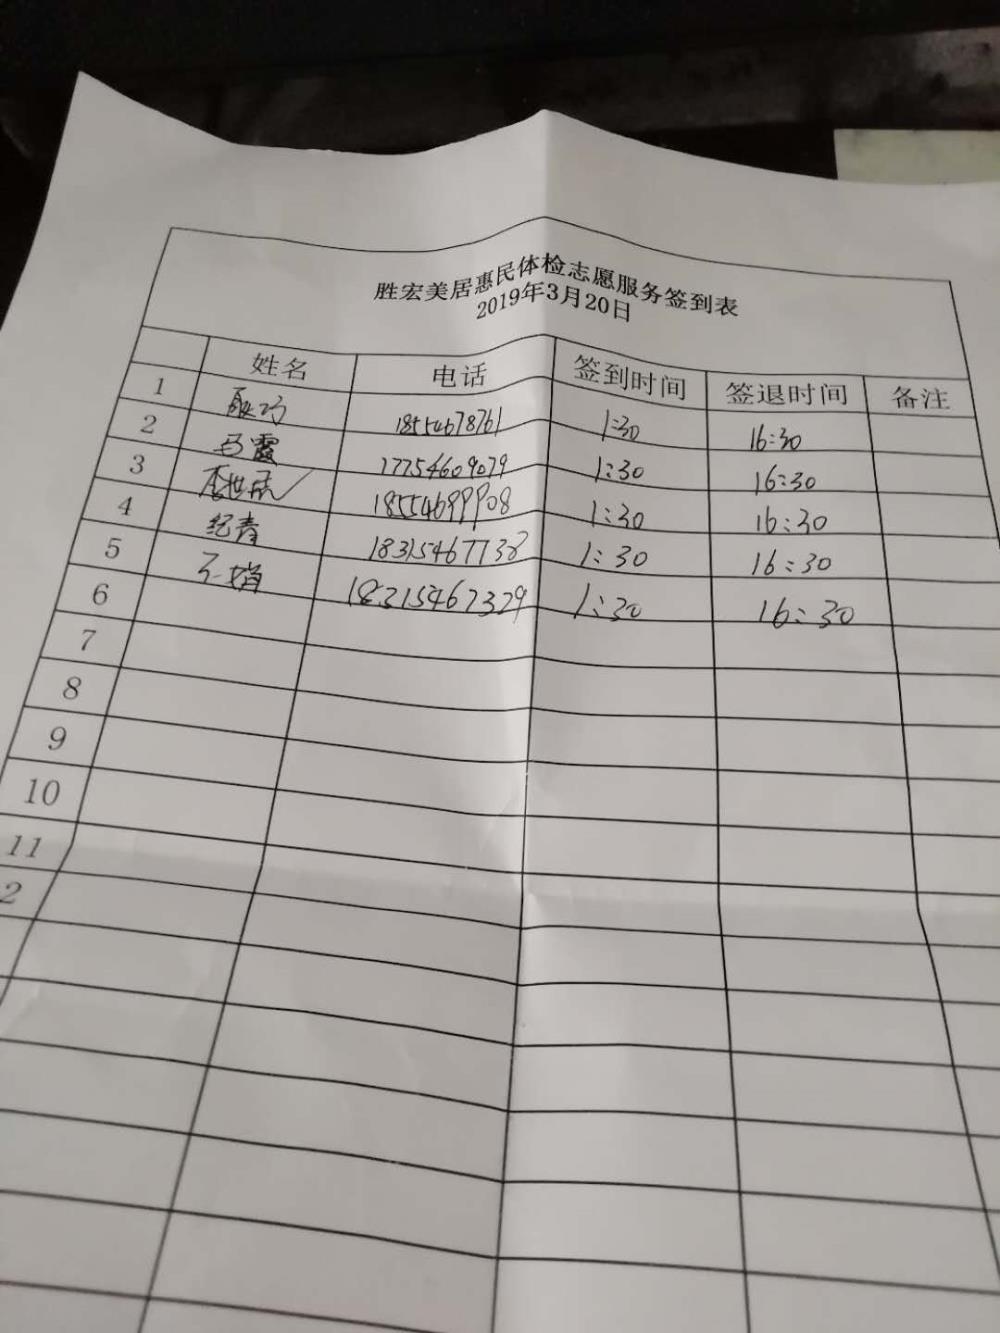 胜宏美居惠民体检志愿服务签到表
2019年3月20日
姓名 电话 签到时间 签退时间 备注
1 18554678761 1:30 16:30
2 马霞 17754609079 1:30 16:30
3 18554699908 1:30 16:30
4 纪青 18315467738 1:30 16:30
5 18315467329 1:30 16:30
6
7
8
9
10
11
2